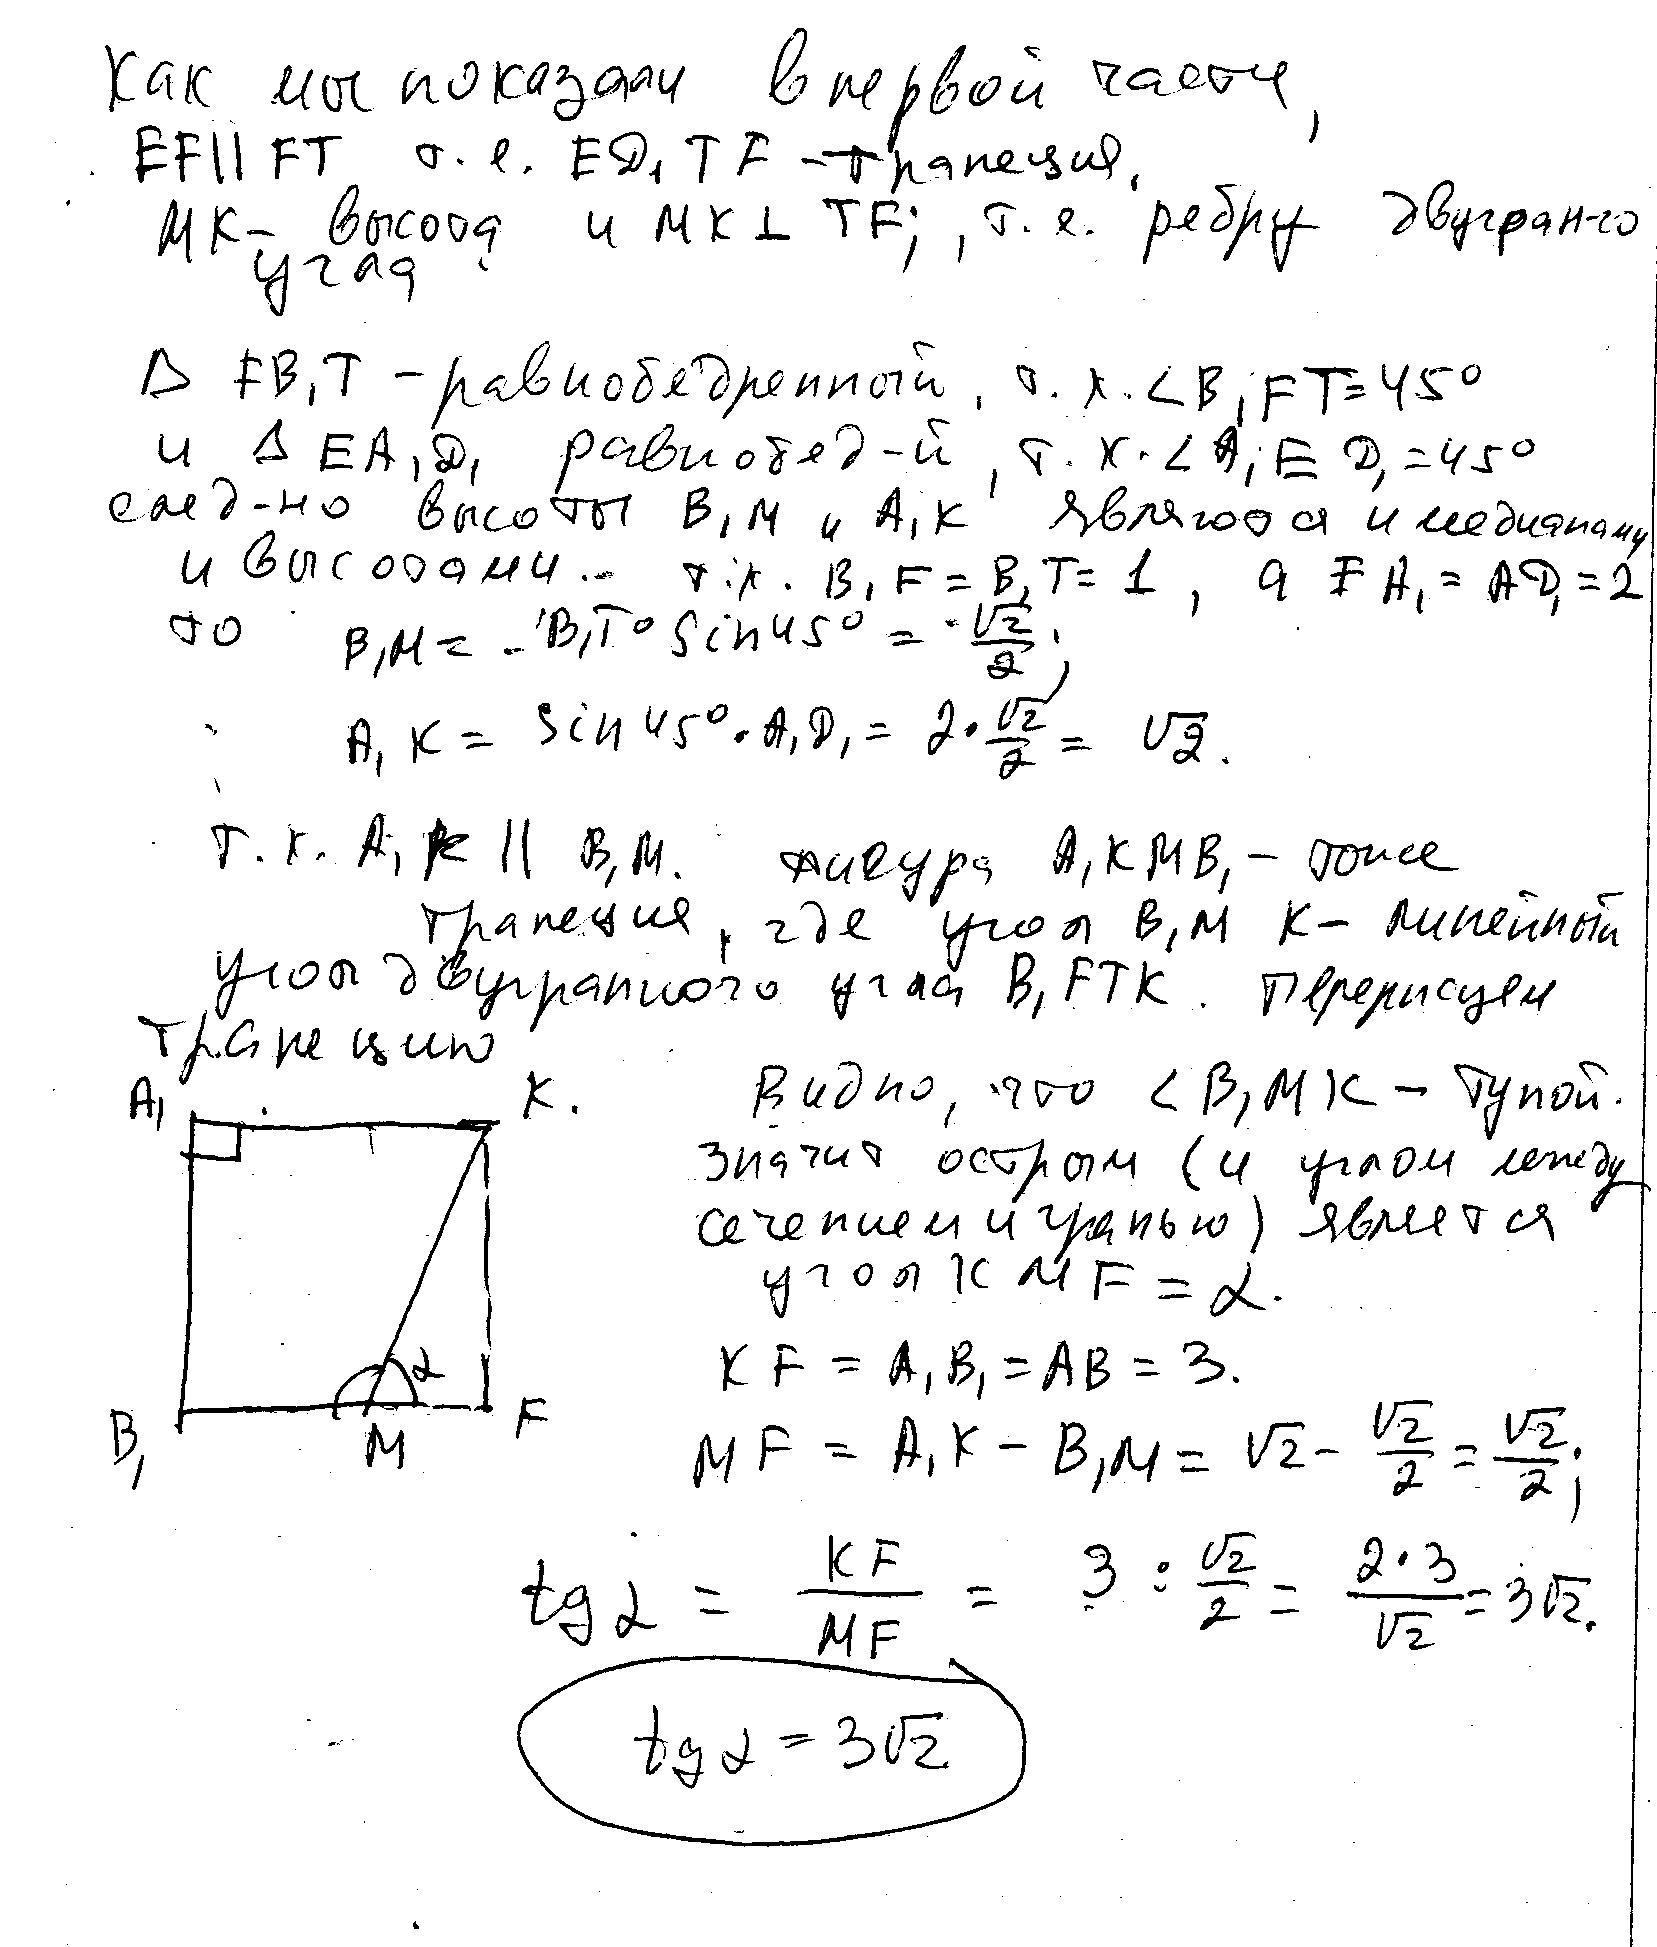 Как мы показали в первой части,
EF || FT т.е. ED₁TF – трапеция,
MK – высота и MK ⊥ TF; , т.е. ребру двугран-го
угла
Δ FB₁T – равнобедренный, т.к. ∠B₁FT = 45°
и Δ EA₁D₁ равнобед-й, т.к. ∠A₁ED₁ = 45°
след-но высоты B₁M и A₁K являются и медианами
и высотами. т.к. B₁F = B₁T = 1, а FA₁ = AD₁ = 2
то B₁M = B₁T · sin 45° = √2/2;
A₁K = sin 45° · A₁D₁ = 2 · √2/2 = √2.
т.к. A₁K || B₁M. фигура A₁KMB₁ – тоже
трапеция, где угол B₁MK – линейный
угол двугранного угла B₁FTK. Перерисуем
трапецию
A₁ K.
Видно, что ∠B₁MK – тупой.
Значит острым (и углом между
сечением и гранью) является
угол KMF = α.
KF = A₁B₁ = AB = 3.
α
B₁ M F
MF = A₁K – B₁M = √2 – √2/2 = √2/2;
tg α = KF/MF = 3 : √2/2 = 2·3/√2 = 3√2.
tg α = 3√2